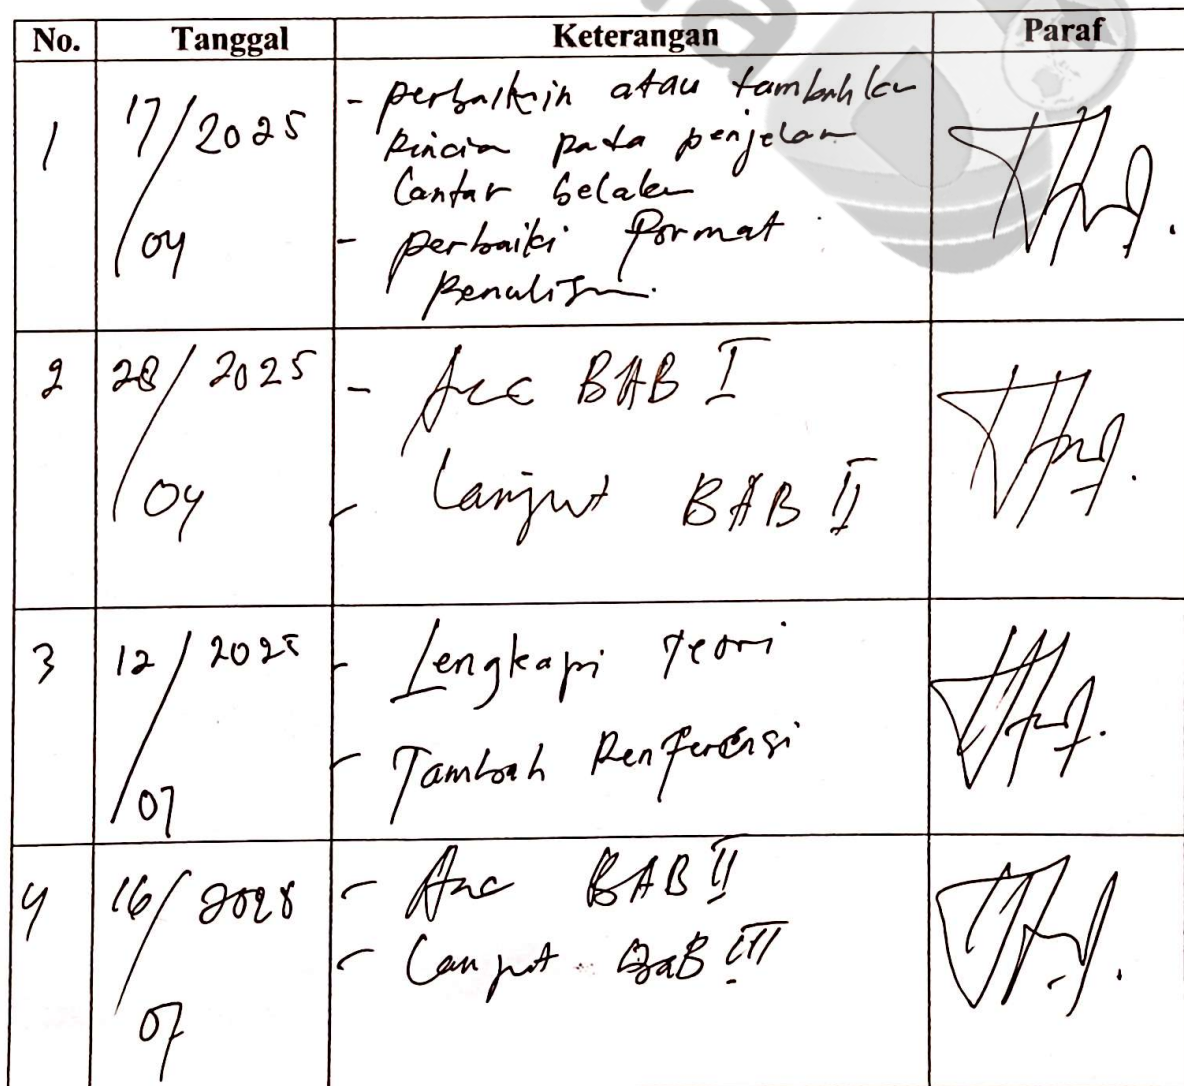 No. Tanggal Keterangan Paraf
1 17/2025 - perbaikin atau tambahkan
rincian pada penjelan
/04 Lantar belakn
- perbaiki format
penulisan.
2 28/2025 - Acc BAB I
/04 - Lanjut BAB II
3 12/2025 - Lengkapi Teori
/07 - Tambah Renferensi
4 16/2025 - Acc BAB II
- Lanjut BaB III
/07